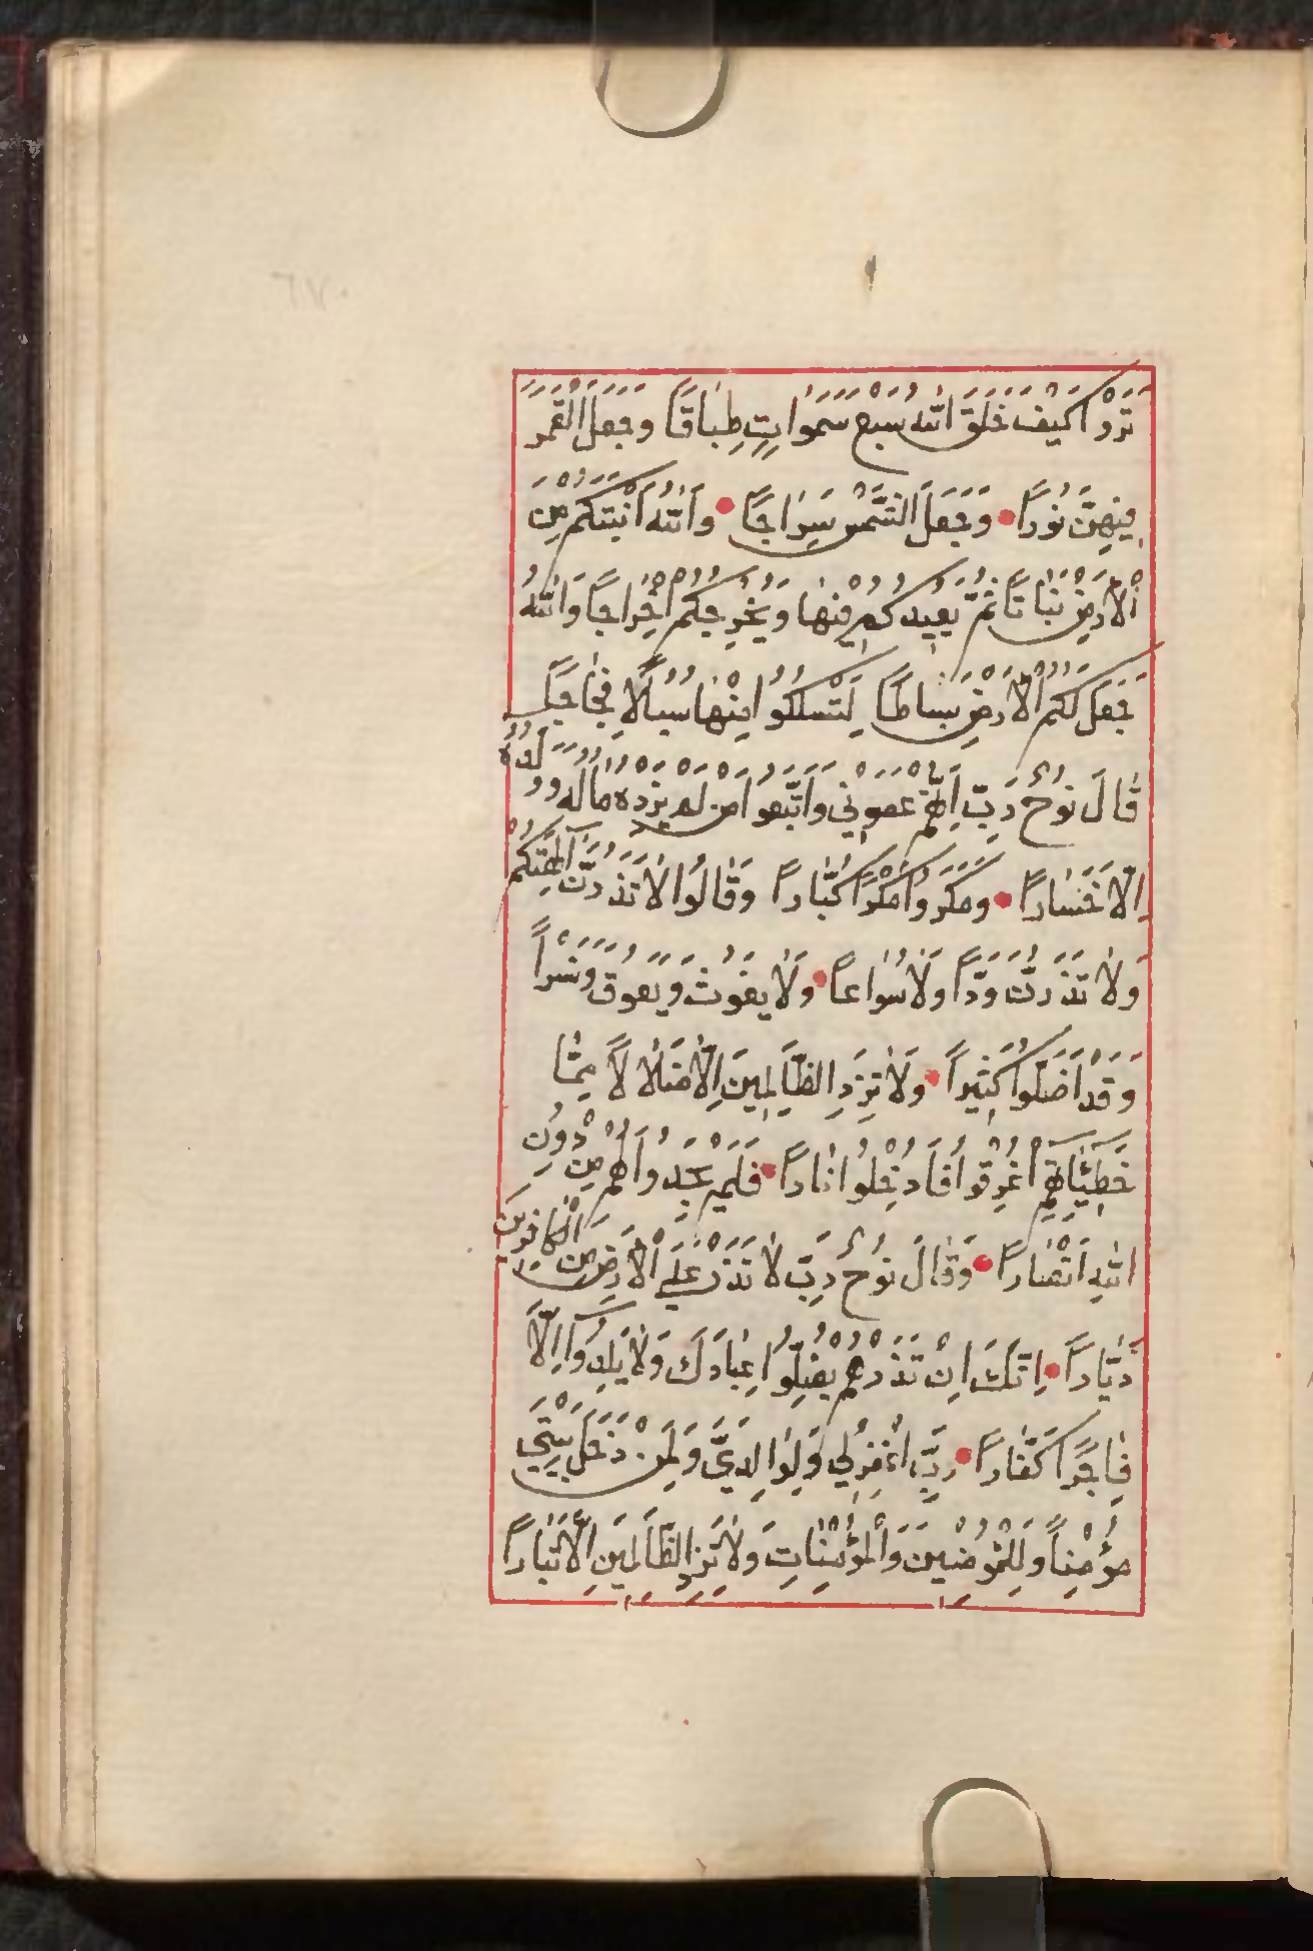 تَرَوْا كَيْفَ خَلَقَ اللهُ سَبْعَ سَمَوَاتٍ طِبَاقًا وَجَعَلَ الْقَمَرَ
فِيهِنَّ نُورًا وَجَعَلَ الشَّمْسَ سِرَاجًا وَاللهُ أَنْبَتَكُمْ مِنَ
الْأَرْضِ نَبَاتًا ثُمَّ يُعِيدُكُمْ فِيْهَا وَيُخْرِجُكُمْ إِخْرَاجًا وَاللهُ
جَعَلَ لَكُمُ الْأَرْضَ بِسَاطًا لِتَسْلُكُوا مِنْهَا سُبُلًا فِجَاجًا
قَالَ نُوحٌ رَبِّ إِنَّهُمْ عَصَوْنِي وَاتَّبَعُوا مَنْ لَمْ يَزِدْهُ مَالُهُ وَوَلَدُهُ
إِلَّا خَسَارًا وَمَكَرُوا مَكْرًا كُبَّارًا وَقَالُوا لَا تَذَرُنَّ آلِهَتَكُمْ
وَلَا تَذَرُنَّ وَدًّا وَلَا سُوَاعًا وَلَا يَغُوثَ وَيَعُوقَ وَنَسْرًا
وَقَدْ أَضَلُّوا كَثِيرًا وَلَا تَزِدِ الظَّالِمِينَ إِلَّا ضَلَالًا مِمَّا
خَطِيئَاتِهِمْ أُغْرِقُوا فَأُدْخِلُوا نَارًا فَلَمْ يَجِدُوا لَهُمْ مِنْ دُونِ
اللهِ أَنْصَارًا وَقَالَ نُوحٌ رَبِّ لَا تَذَرْ عَلَى الْأَرْضِ مِنَ الْكَافِرِينَ
دَيَّارًا إِنَّكَ إِنْ تَذَرْهُمْ يُضِلُّوا عِبَادَكَ وَلَا يَلِدُوا إِلَّا
فَاجِرًا كَفَّارًا رَبِّ اغْفِرْ لِي وَلِوَالِدَيَّ وَلِمَنْ دَخَلَ بَيْتِيَ
مُؤْمِنًا وَلِلْمُؤْمِنِينَ وَالْمُؤْمِنَاتِ وَلَا تَزِدِ الظَّالِمِينَ إِلَّا تَبَارًا